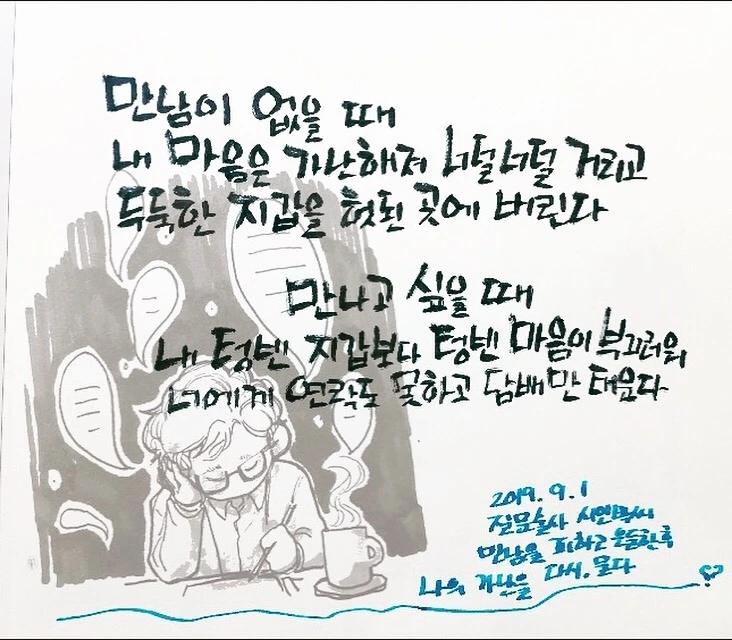 만남이 없을 때
내 마음은 가난해져 너덜너덜 거리고
두둑한 지갑을 헛된 곳에 버린다
만나고 싶을 때
내 텅빈 지갑보다 텅빈 마음이 부끄러워
너에게 연락도 못하고 담배만 태운다
2019. 9. 1
질문술사 시인박씨
만남을 피하고 우울한 후
나의 가난을 다시, 묻다